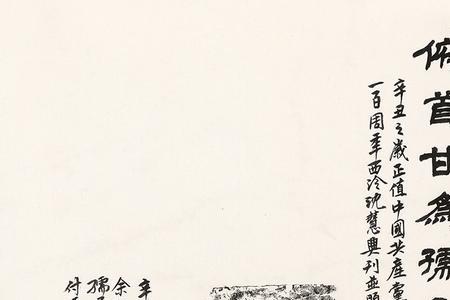 俯首甘為孺
辛丑之歲正值中國共產黨
一百周年西泠沈慧興刊並
辛
余
孺
付